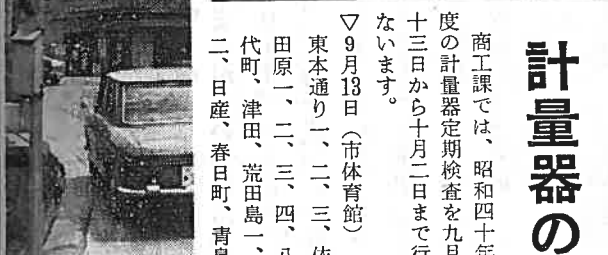 計量器の
商工課では、昭和四十年
度の計量器定期検査を九月
十三日から十月二日まで行
ないます。
▽9月13日（市体育館）
東本通り一、二、三、依
田原一、二、三、四、八
代町、津田、荒田島一、
二、日産、春日町、青島